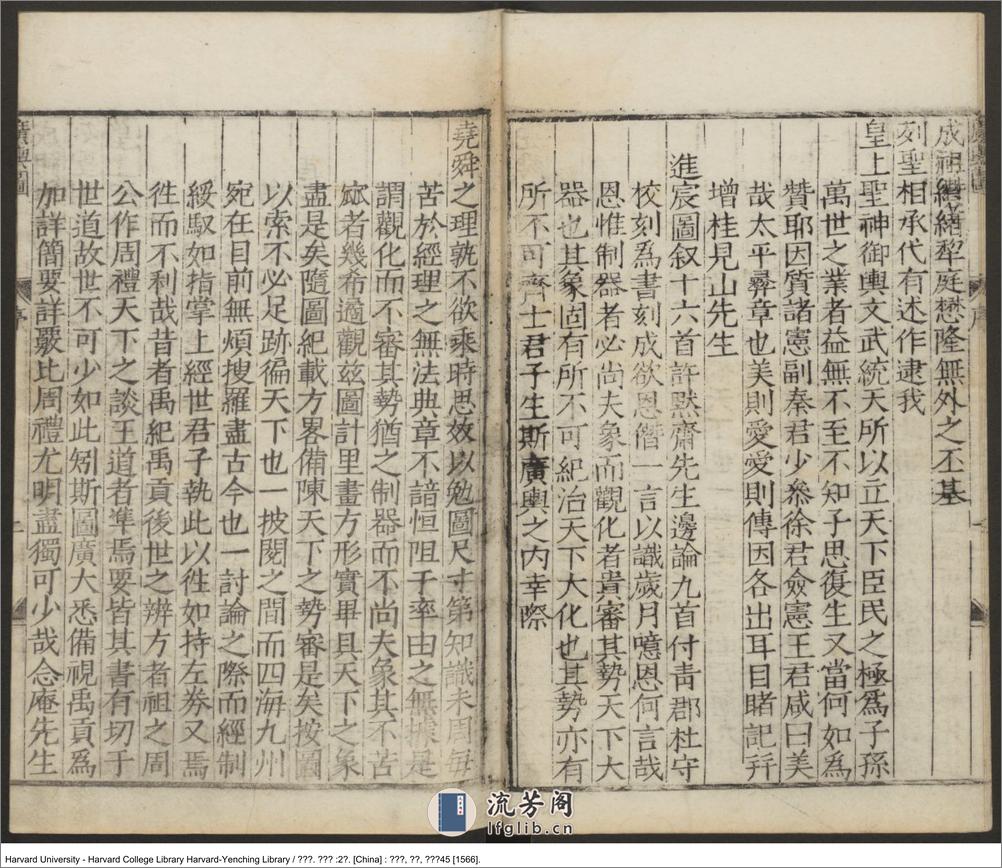 成祖纘緒犁庭懋隆無外之丕基
列聖相承代有述作逮我
皇上聖神御輿文武統天所以立天下臣民之極為子孫
萬世之業者益無不至不知子思復生又當何如為
贊耶因質諸憲副秦君少參徐君僉憲王君咸曰美
哉太平彛章也美則愛愛則傳因各出耳目睹記幷
增桂見山先生
進宸圖叙十六首許默齋先生邊論九首付青郡杜守
校刻為書刻成欲恩僭一言以識歲月噫恩何言哉
恩惟制器者必尚夫象而觀化者貴審其勢天下大
器也其象固有所不可紀治天下大化也其勢亦有
所不可齊士君子生斯廣輿之內幸際
堯舜之理孰不欲乘時思效以勉圖尺寸第知識未周每
苦於經理之無法典章不諳恒阻于率由之無據是
謂觀化而不審其勢猶之制器而不尚夫象其不苦
窳者幾希適觀玆圖計里畫方形實畢具天下之象
盡是矣隨圖紀載方畧備陳天下之勢審是矣按圖
以索不必足跡徧天下也一披閱之間而四海九州
宛在目前無煩搜羅盡古今也一討論之際而經制
綏馭如指掌上經世君子執此以徃如持左券又焉
徃而不利哉昔者禹紀禹貢後世之辨方者祖之周
公作周禮天下之談王道者凖焉要皆其書有切于
世道故世不可少如此矧斯圖廣大悉備視禹貢為
加詳簡要詳覈比周禮尤明盡獨可少哉念庵先生
廣輿圖
序
流芳阁
lfglib.cn
Harvard University - Harvard College Library Harvard-Yenching Library / ???. ??? :2?. [China] : ???, ??, ???45 [1566].